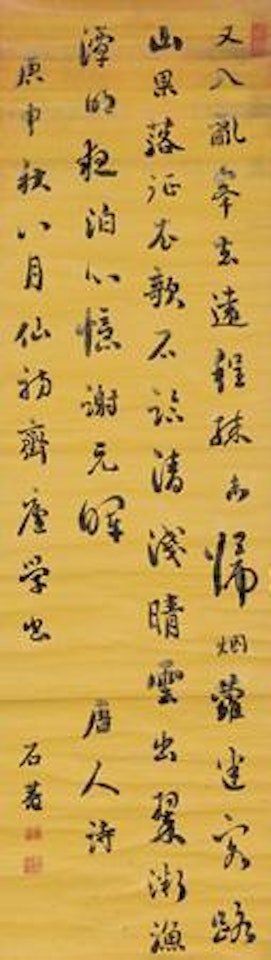 又入亂峯去遠程殊未歸烟蘿迷客路
山果落征衣欹石臨清淺晴雲出翠微漁
潭明夜泊心憶謝元暉 唐人詩
庚申秋八月仙舫齋學書 石菴